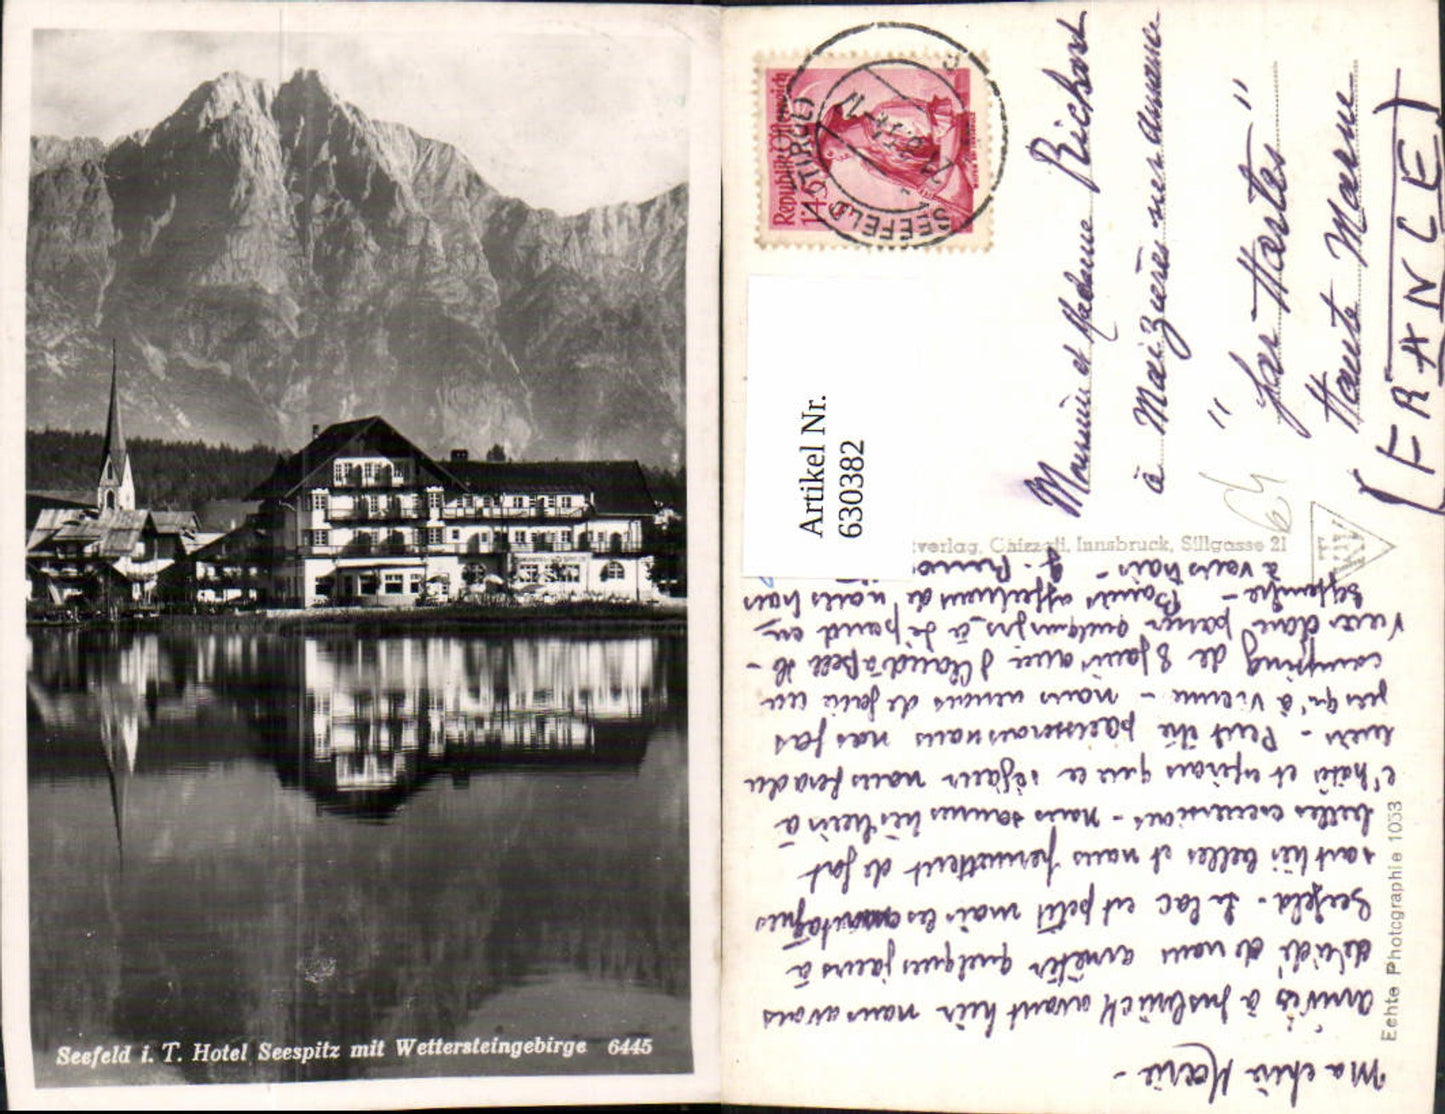 Seefeld i. T. Hotel Seespitz mit Wettersteingebirge 6445
Republik Österreich
1'45
SEEFELD (TIROL)
Artikel Nr.
630382
Monsieur et Madame Richard
à Maizières sur Amance
" par Hortes "
Haute Marne
(FRANCE)
64
verlag, Chizzali, Innsbruck, Sillgasse 21
Echte Photographie 1053
Ma chère Marie -
Arrivés à Insbrück avant hier nous avons
décidé de nous arrêter quelques jours à
Seefeld - Le lac est petit mais les montagnes
sont très belles et nous permettent de fort
belles excursions - nous sommes très bien à
l'hôtel et espérons que ce séjour nous fera du
bien - Peut être pousserons nous pas
jusqu'à Vienne - nous venons de faire un
camping de 8 jours avec
passer quelques jrs à
septembre - affectueux de nous trois
à vous trois -